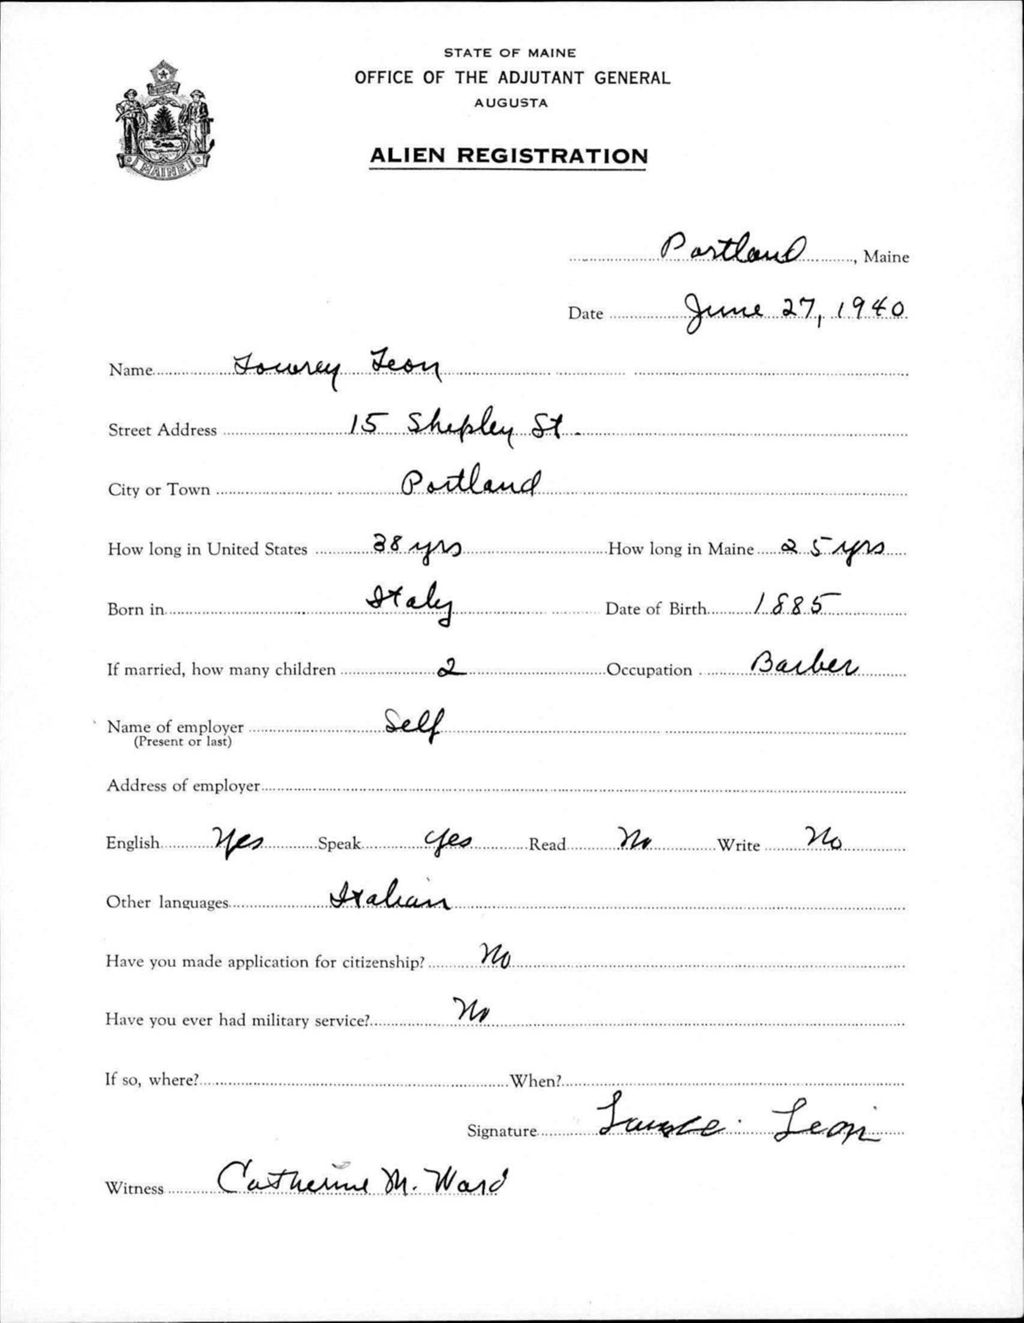 STATE OF MAINE
OFFICE OF THE ADJUTANT GENERAL
AUGUSTA
ALIEN REGISTRATION
MAINE
Portland, Maine
Date June 27, 1940
Name Lowrey Leon
Street Address 15 Shepley St.
City or Town Portland
How long in United States 38 yrs How long in Maine 25 yrs
Born in Italy Date of Birth 1885
If married, how many children 2 Occupation Barber
Name of employer Self
(Present or last)
Address of employer
English Yes Speak Yes Read No Write No
Other languages Italian
Have you made application for citizenship? No
Have you ever had military service? No
If so, where? When?
Signature Leon
Witness Catherine M. Ward